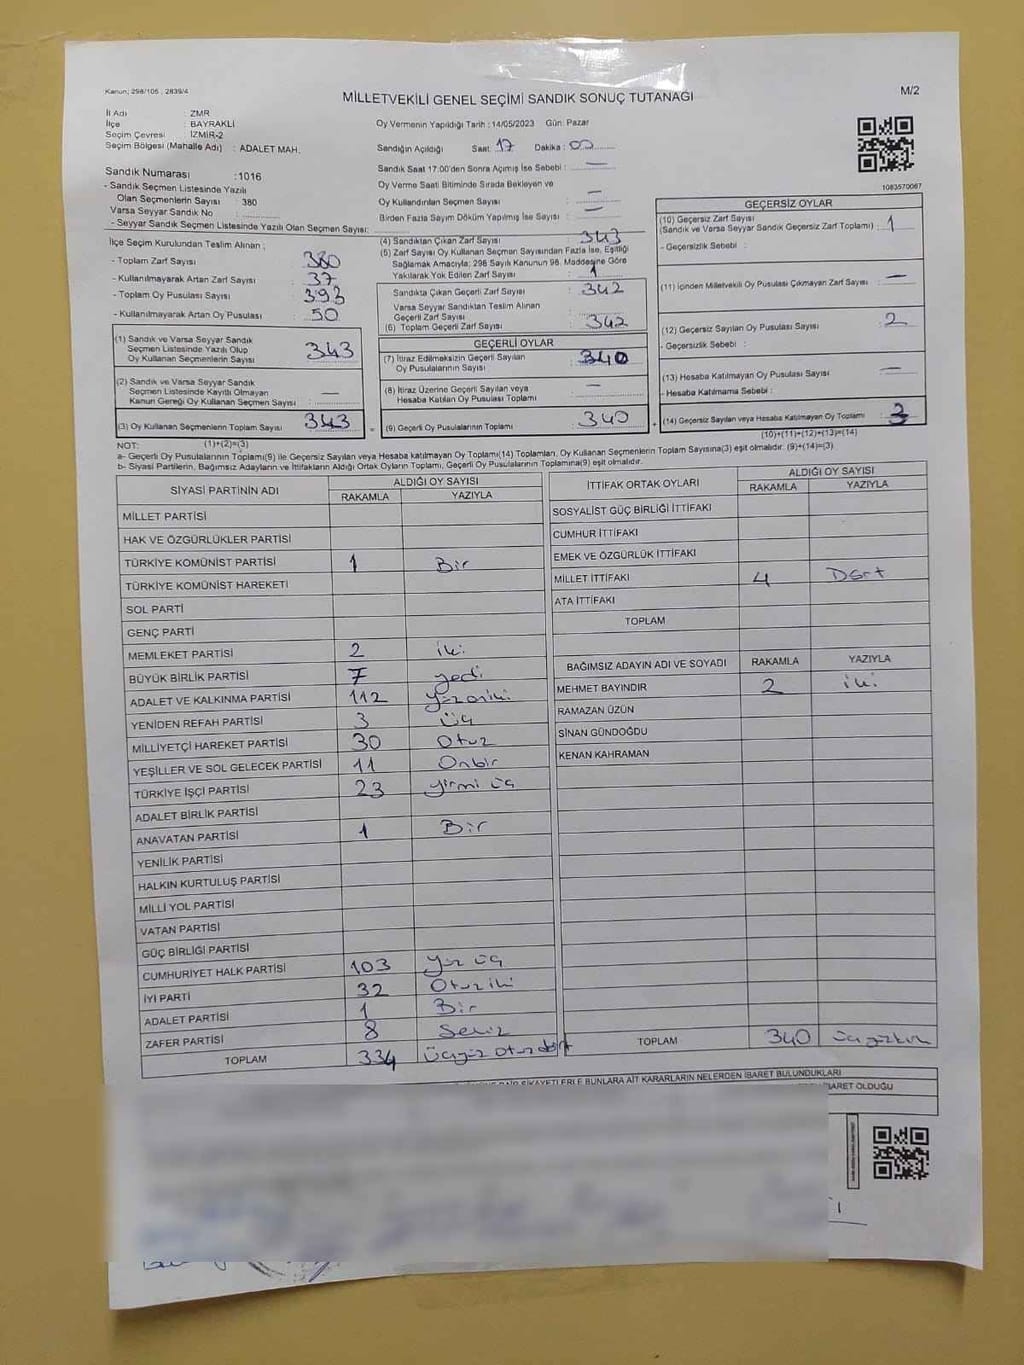 Kanun; 298/105 ; 2839/4
MİLLETVEKİLİ GENEL SEÇİMİ SANDIK SONUÇ TUTANAĞI
M/2
İl Adı : ZMR
İlçe : BAYRAKLI
Seçim Çevresi : İZMİR-2
Seçim Bölgesi (Mahalle Adı) : ADALET MAH.
Oy Vermenin Yapıldığı Tarih : 14/05/2023 Gün: Pazar
Sandığın Açıldığı Saat : 17 Dakika : 00
Sandık Saat 17:00'den Sonra Açımış İse Sebebi : —
Oy Verme Saati Bitiminde Sırada Bekleyen ve
Oy Kullandırılan Seçmen Sayısı : —
Birden Fazla Sayım Döküm Yapılmış İse Sayısı : —
Sandık Numarası : 1016
- Sandık Seçmen Listesinde Yazılı
Olan Seçmenlerin Sayısı : 380
Varsa Seyyar Sandık No :
- Seyyar Sandık Seçmen Listesinde Yazılı Olan Seçmen Sayısı:
1083570067
İlçe Seçim Kurulundan Teslim Alınan ;
- Toplam Zarf Sayısı : 380
- Kullanılmayarak Artan Zarf Sayısı : 37
- Toplam Oy Pusulası Sayısı : 393
- Kullanılmayarak Artan Oy Pusulası : 50
(1) Sandık ve Varsa Seyyar Sandık
Seçmen Listesinde Yazılı Olup
Oy Kullanan Seçmenlerin Sayısı : 343
(2) Sandık ve Varsa Seyyar Sandık
Seçmen Listesinde Kayıtlı Olmayan
Kanun Gereği Oy Kullanan Seçmen Sayısı : —
(3) Oy Kullanan Seçmenlerin Toplam Sayısı : 343
(4) Sandıktan Çıkan Zarf Sayısı : 343
(5) Zarf Sayısı Oy Kullanan Seçmen Sayısından Fazla İse, Eşitliği
Sağlamak Amacıyla; 298 Sayılı Kanunun 98. Maddesine Göre
Yakılarak Yok Edilen Zarf Sayısı : 1
Sandıkta Çıkan Geçerli Zarf Sayısı : 342
Varsa Seyyar Sandıktan Teslim Alınan
Geçerli Zarf Sayısı :
(6) Toplam Geçerli Zarf Sayısı : 342
GEÇERLİ OYLAR
(7) İtiraz Edilmeksizin Geçerli Sayılan
Oy Pusulalarının Sayısı : 340
(8) İtiraz Üzerine Geçerli Sayılan veya
Hesaba Katılan Oy Pusulası Toplamı : —
= (9) Geçerli Oy Pusulalarının Toplamı : 340
GEÇERSİZ OYLAR
(10) Geçersiz Zarf Sayısı
(Sandık ve Varsa Seyyar Sandık Geçersiz Zarf Toplamı) : 1
- Geçersizlik Sebebi :
(11) İçinden Milletvekili Oy Pusulası Çıkmayan Zarf Sayısı : —
(12) Geçersiz Sayılan Oy Pusulası Sayısı : 2
- Geçersizlik Sebebi :
(13) Hesaba Katılmayan Oy Pusulası Sayısı : —
- Hesaba Katılmama Sebebi :
+ (14) Geçersiz Sayılan veya Hesaba Katılmayan Oy Toplamı : 3
NOT: (1)+(2)=(3)
(10)+(11)+(12)+(13)=(14)
a- Geçerli Oy Pusulalarının Toplamı(9) ile Geçersiz Sayılan veya Hesaba katılmayan Oy Toplamı(14) Toplamları, Oy Kullanan Seçmenlerin Toplam Sayısına(3) eşit olmalıdır. (9)+(14)=(3)
b- Siyasi Partilerin, Bağımsız Adayların ve İttifakların Aldığı Ortak Oyların Toplamı, Geçerli Oy Pusulalarının Toplamına(9) eşit olmalıdır.
SİYASİ PARTİNİN ADI ALDIĞI OY SAYISI
RAKAMLA YAZIYLA
MİLLET PARTİSİ
HAK VE ÖZGÜRLÜKLER PARTİSİ
TÜRKİYE KOMÜNİST PARTİSİ 1 Bir
TÜRKİYE KOMÜNİST HAREKETİ
SOL PARTİ
GENÇ PARTİ
MEMLEKET PARTİSİ 2 iki
BÜYÜK BİRLİK PARTİSİ 7 yedi
ADALET VE KALKINMA PARTİSİ 112 yüzoniki
YENİDEN REFAH PARTİSİ 3 Üç
MİLLİYETÇİ HAREKET PARTİSİ 30 Otuz
YEŞİLLER VE SOL GELECEK PARTİSİ 11 Onbir
TÜRKİYE İŞÇİ PARTİSİ 23 yirmi üç
ADALET BİRLİK PARTİSİ
ANAVATAN PARTİSİ 1 Bir
YENİLİK PARTİSİ
HALKIN KURTULUŞ PARTİSİ
MİLLİ YOL PARTİSİ
VATAN PARTİSİ
GÜÇ BİRLİĞİ PARTİSİ
CUMHURİYET HALK PARTİSİ 103 yüz üç
İYİ PARTİ 32 Otuz iki
ADALET PARTİSİ 1 Bir
ZAFER PARTİSİ 8 Sekiz
TOPLAM 334 Üçyüz otuz dört
İTTİFAK ORTAK OYLARI ALDIĞI OY SAYISI
RAKAMLA YAZIYLA
SOSYALİST GÜÇ BİRLİĞİ İTTİFAKI
CUMHUR İTTİFAKI
EMEK VE ÖZGÜRLÜK İTTİFAKI
MİLLET İTTİFAKI 4 Dört
ATA İTTİFAKI
TOPLAM
BAĞIMSIZ ADAYIN ADI VE SOYADI RAKAMLA YAZIYLA
MEHMET BAYINDIR 2 iki
RAMAZAN ÜZÜN
SİNAN GÜNDOĞDU
KENAN KAHRAMAN
TOPLAM 340 üçyüzkırk
ŞİKAYETLERLE BUNLARA AİT KARARLARIN NELERDEN İBARET BULUNDUKLARI
İBARET OLDUĞU